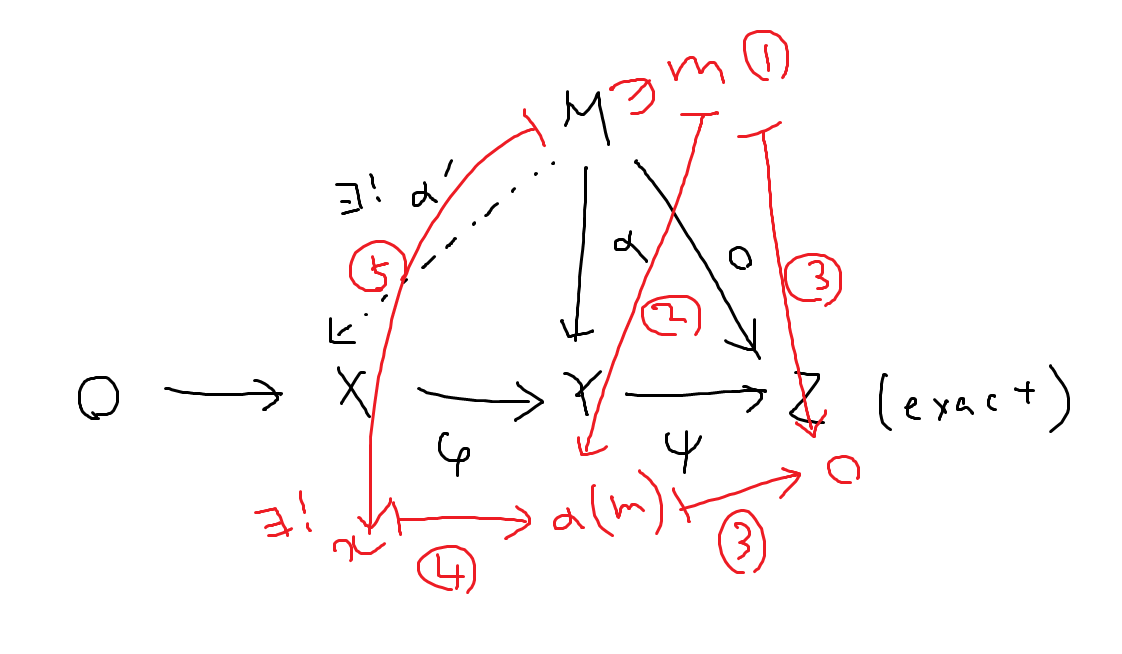 M ∋ m ①
∃! α′
⑤ α 0 ③
②
0 X Y Z (exact)
φ ψ
∃! x α(m) 0
④ ③